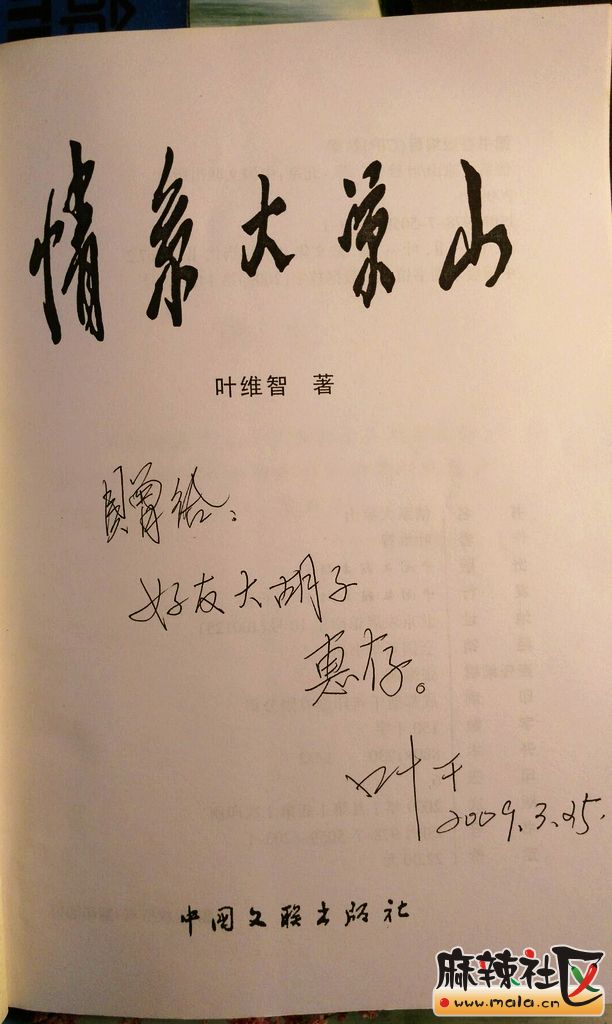 情系大凉山
叶维智 著
赠给:
好友大胡子
惠存。
叶干
2009.3.25.
中国文联出版社
麻辣社区
www.mala.cn